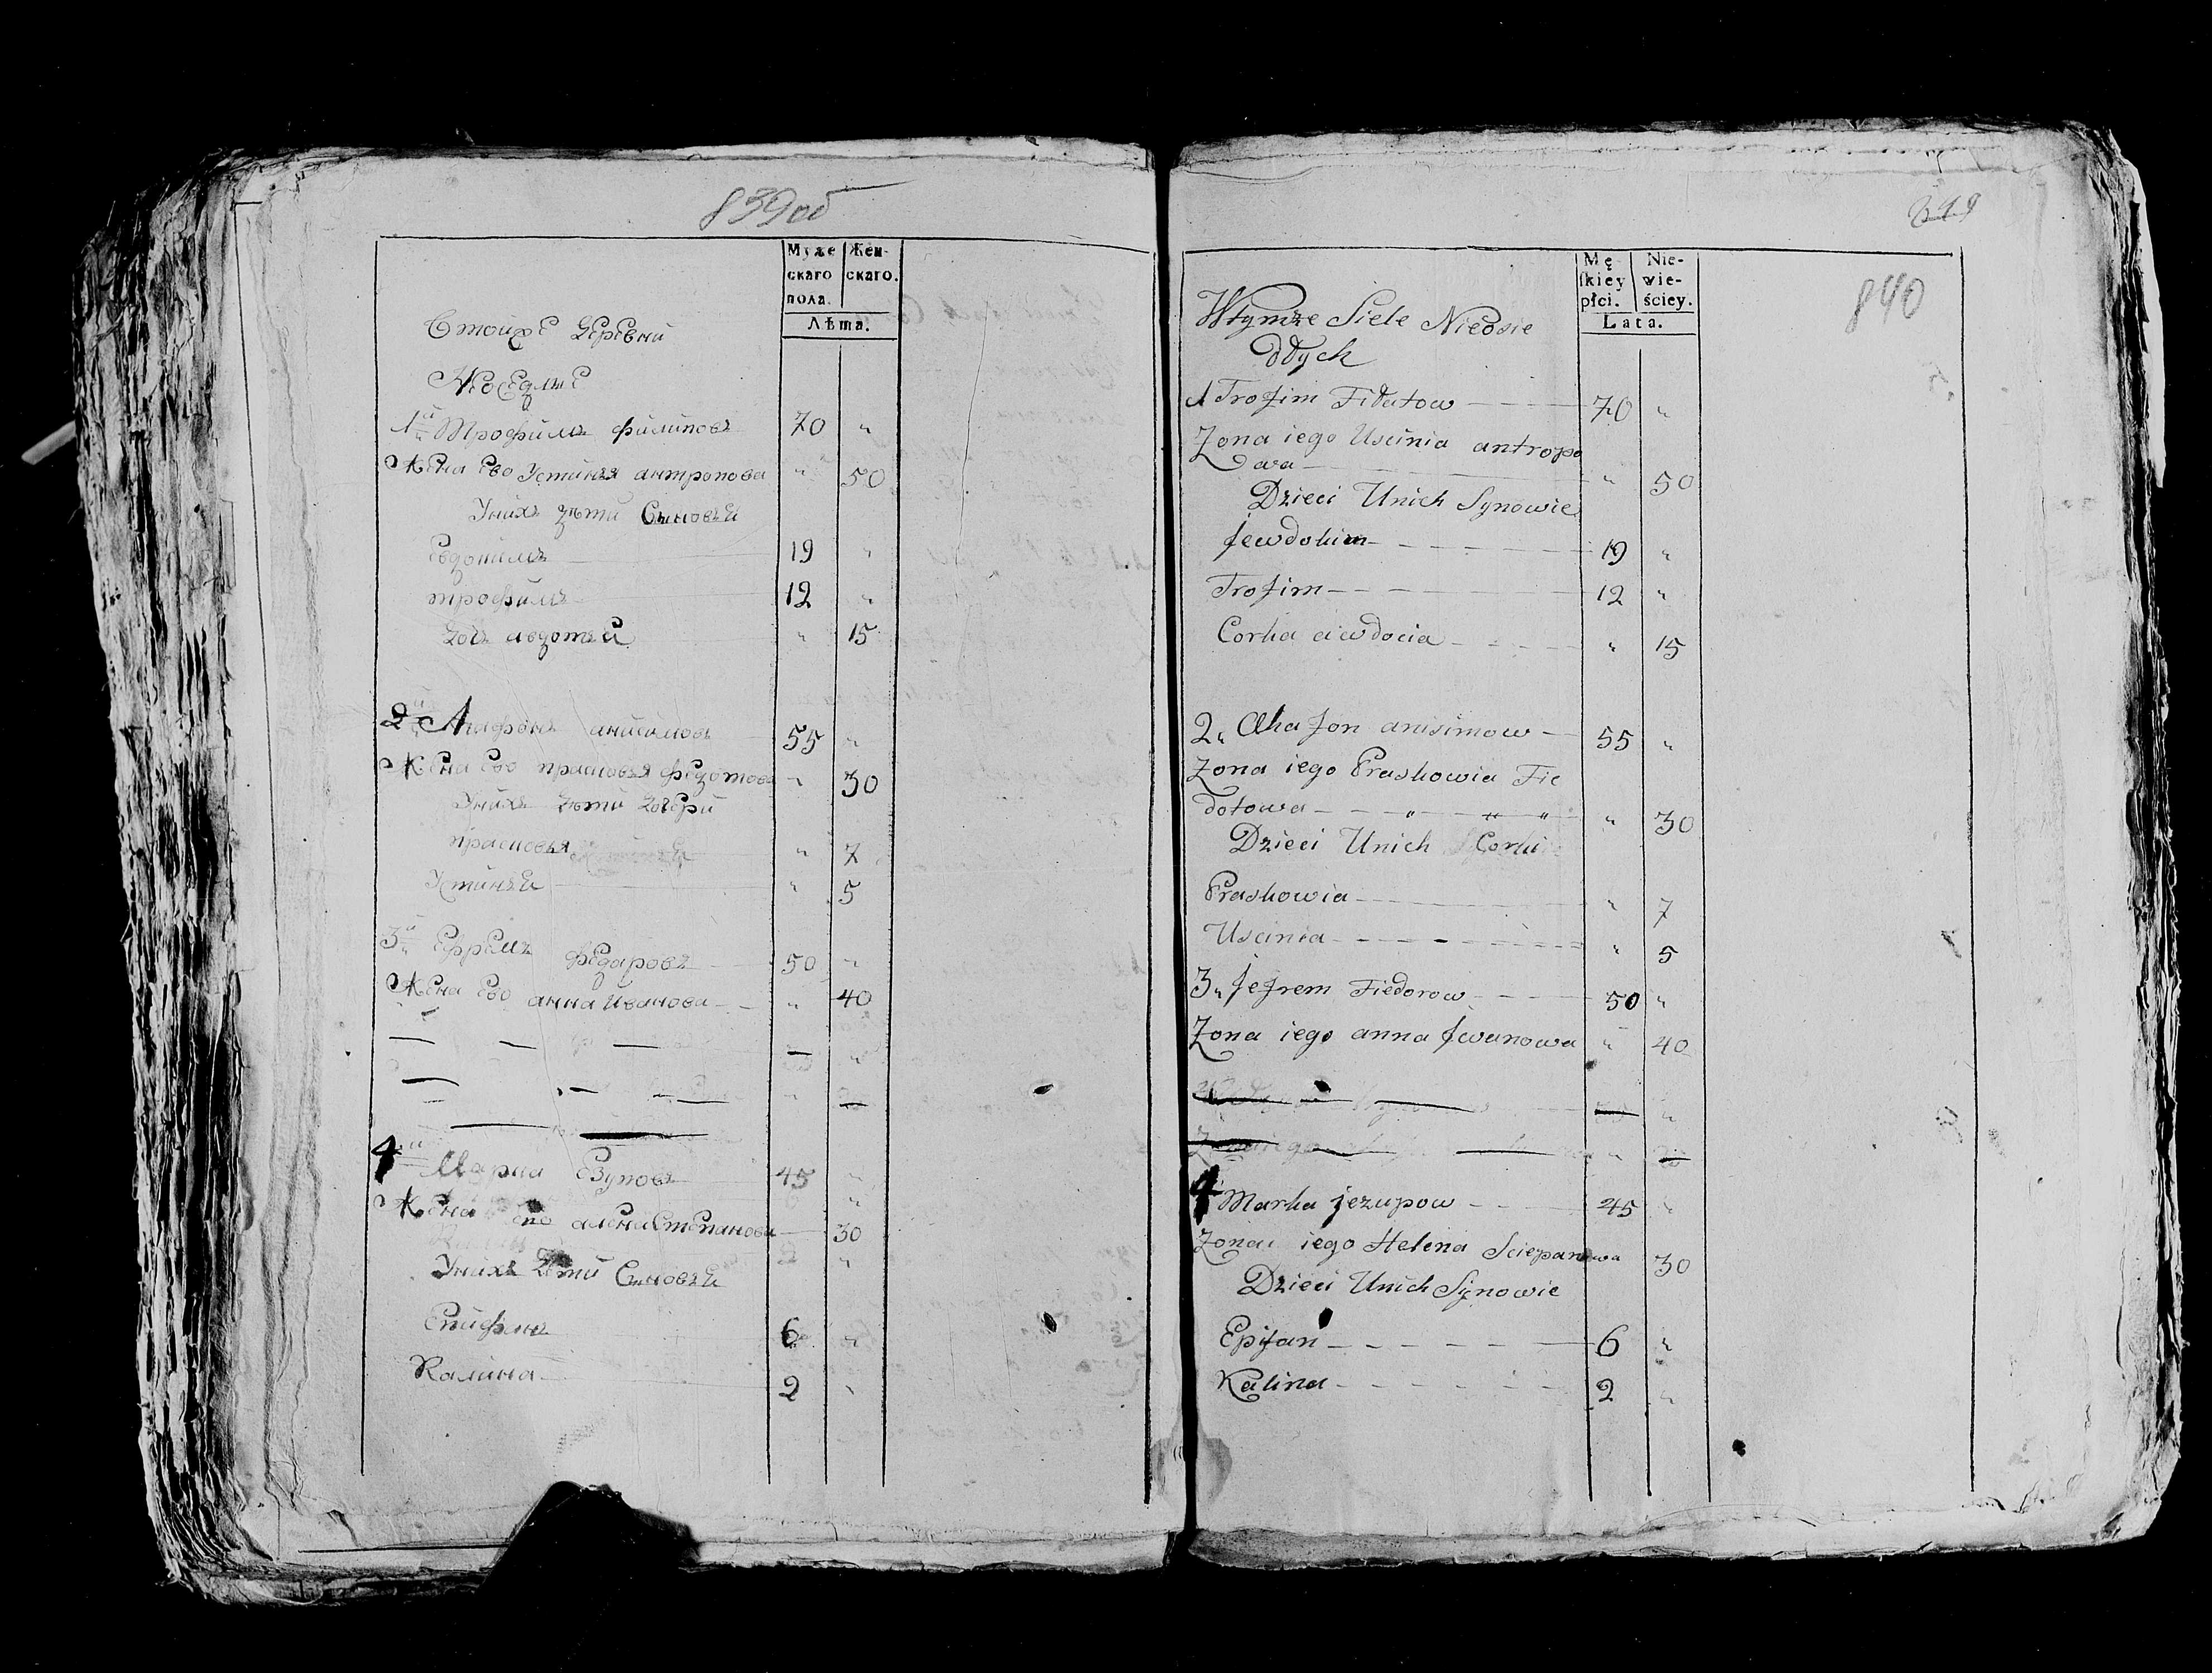 839об
Муже
скаго
пола.
Жен-
скаго.
Лѣта.
Стойже Деревни
Неоседлые
1й Трофимъ филиповъ 70 "
Жена ево Устинья антропова " 50
Унихъ дѣти Сыновьи
Евдокимъ 19 "
трофимъ 12 "
Дочь авдотьи " 15
2й Агафонъ анисимовъ 55 "
Жена ево прасковья федотова " 30
Унихъ дѣти дочери
прасковья " 7
Устиньи " 5
3й Ефремъ федаровъ 50 "
Жена ево анна Иванова " 40
4й Марка Езуповъ 45 "
Жена ево алена Степанова 30
Унихъ дѣти Сыновьи
Епифанъ 6 "
Калина 2 "
849
840
Mę-
skiey
płci.
Nie-
wie-
ściey.
Lata.
Wtymże Siele Nieosie
dłych
1 Trofim Fiłatow 70 "
Zona iego Uscinia antropo
wa " 50
Dzieci Unich Synowie
Jewdokim 19 "
Trofim 12 "
Corka awdocia " 15
2 Ahafon anisimow 55 "
Zona iego Praskowia Fie
dotowa " 30
Dzieci Unich Corki
Praskowia " 7
Uscinia " 5
3 Jefrem Fiedorow 50 "
Zona iego anna Jwanowa " 40
4 Marka jezupow 45 "
Zona iego Helena Sciepanowa 30
Dzieci Unich Synowie
Epifan 6 "
Kalina 2 "